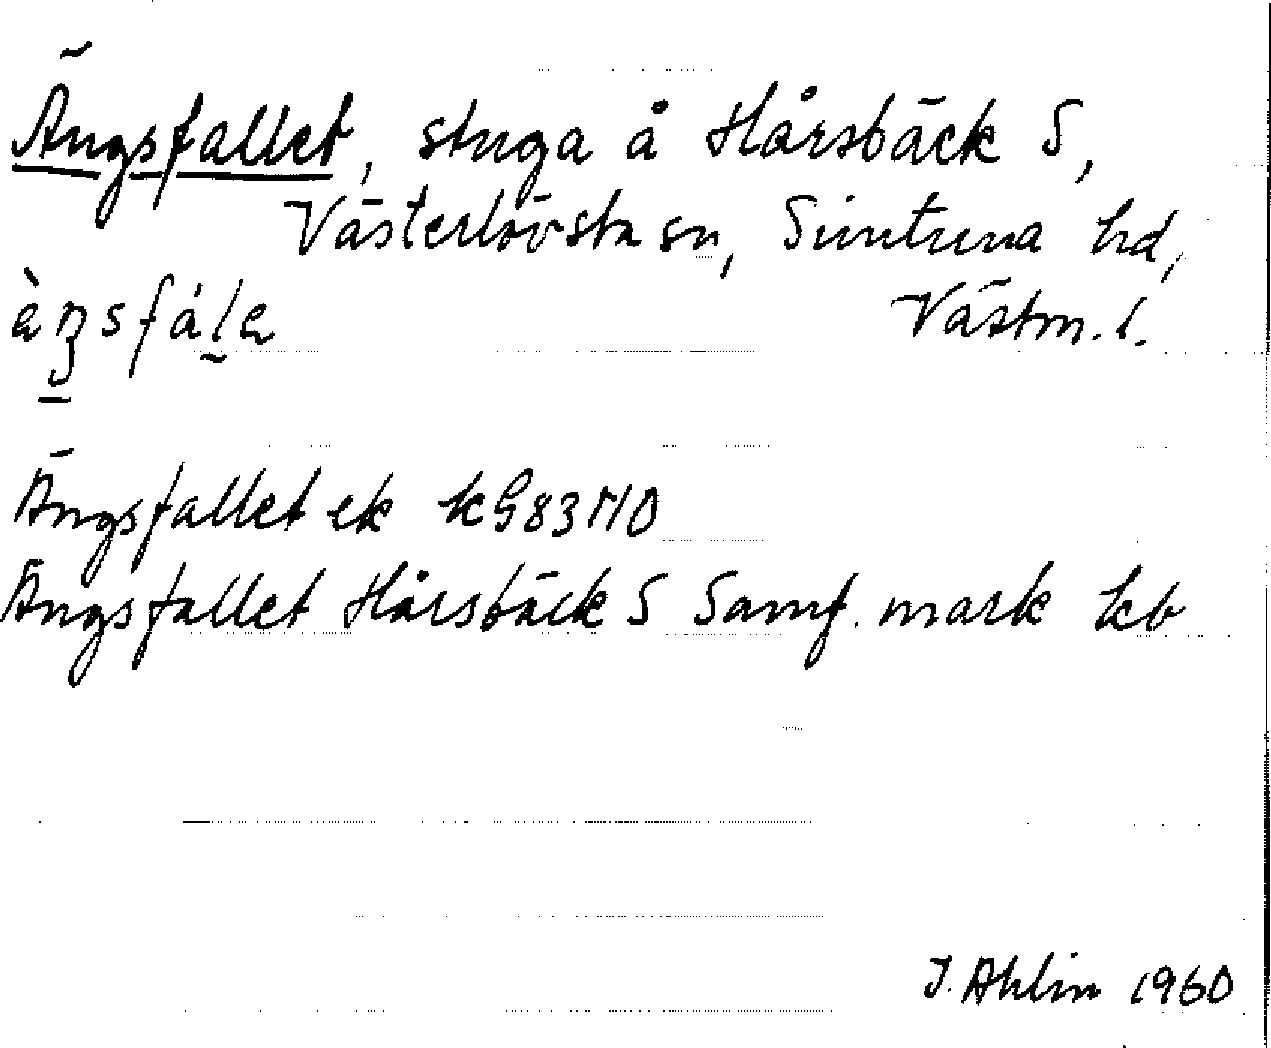 Ängsfallet, stuga å Hårsbäck S,
Västerlövsta sn, Simtuna hd,
Västm. l.
Ängsfallet ek kG83 NO
Ängsfallet Hårsbäck S Samf. mark kb
J. Ahlin 1960